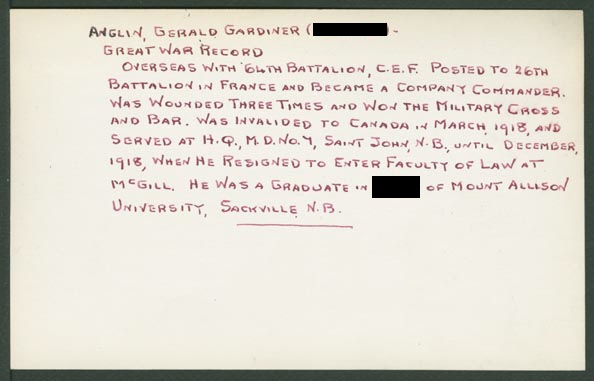 ANGLIN, GERALD GARDINER (        )-
GREAT WAR RECORD
OVERSEAS WITH 64TH BATTALION, C.E.F. POSTED TO 26TH
BATTALION IN FRANCE AND BECAME A COMPANY COMMANDER.
WAS WOUNDED THREE TIMES AND WON THE MILITARY CROSS
AND BAR. WAS INVALIDED TO CANADA IN MARCH, 1918, AND
SERVED AT H.Q., M.D. NO. 7, SAINT JOHN, N.B., UNTIL DECEMBER,
1918, WHEN HE RESIGNED TO ENTER FACULTY OF LAW AT
MCGILL. HE WAS A GRADUATE IN         OF MOUNT ALLISON
UNIVERSITY, SACKVILLE, N.B.